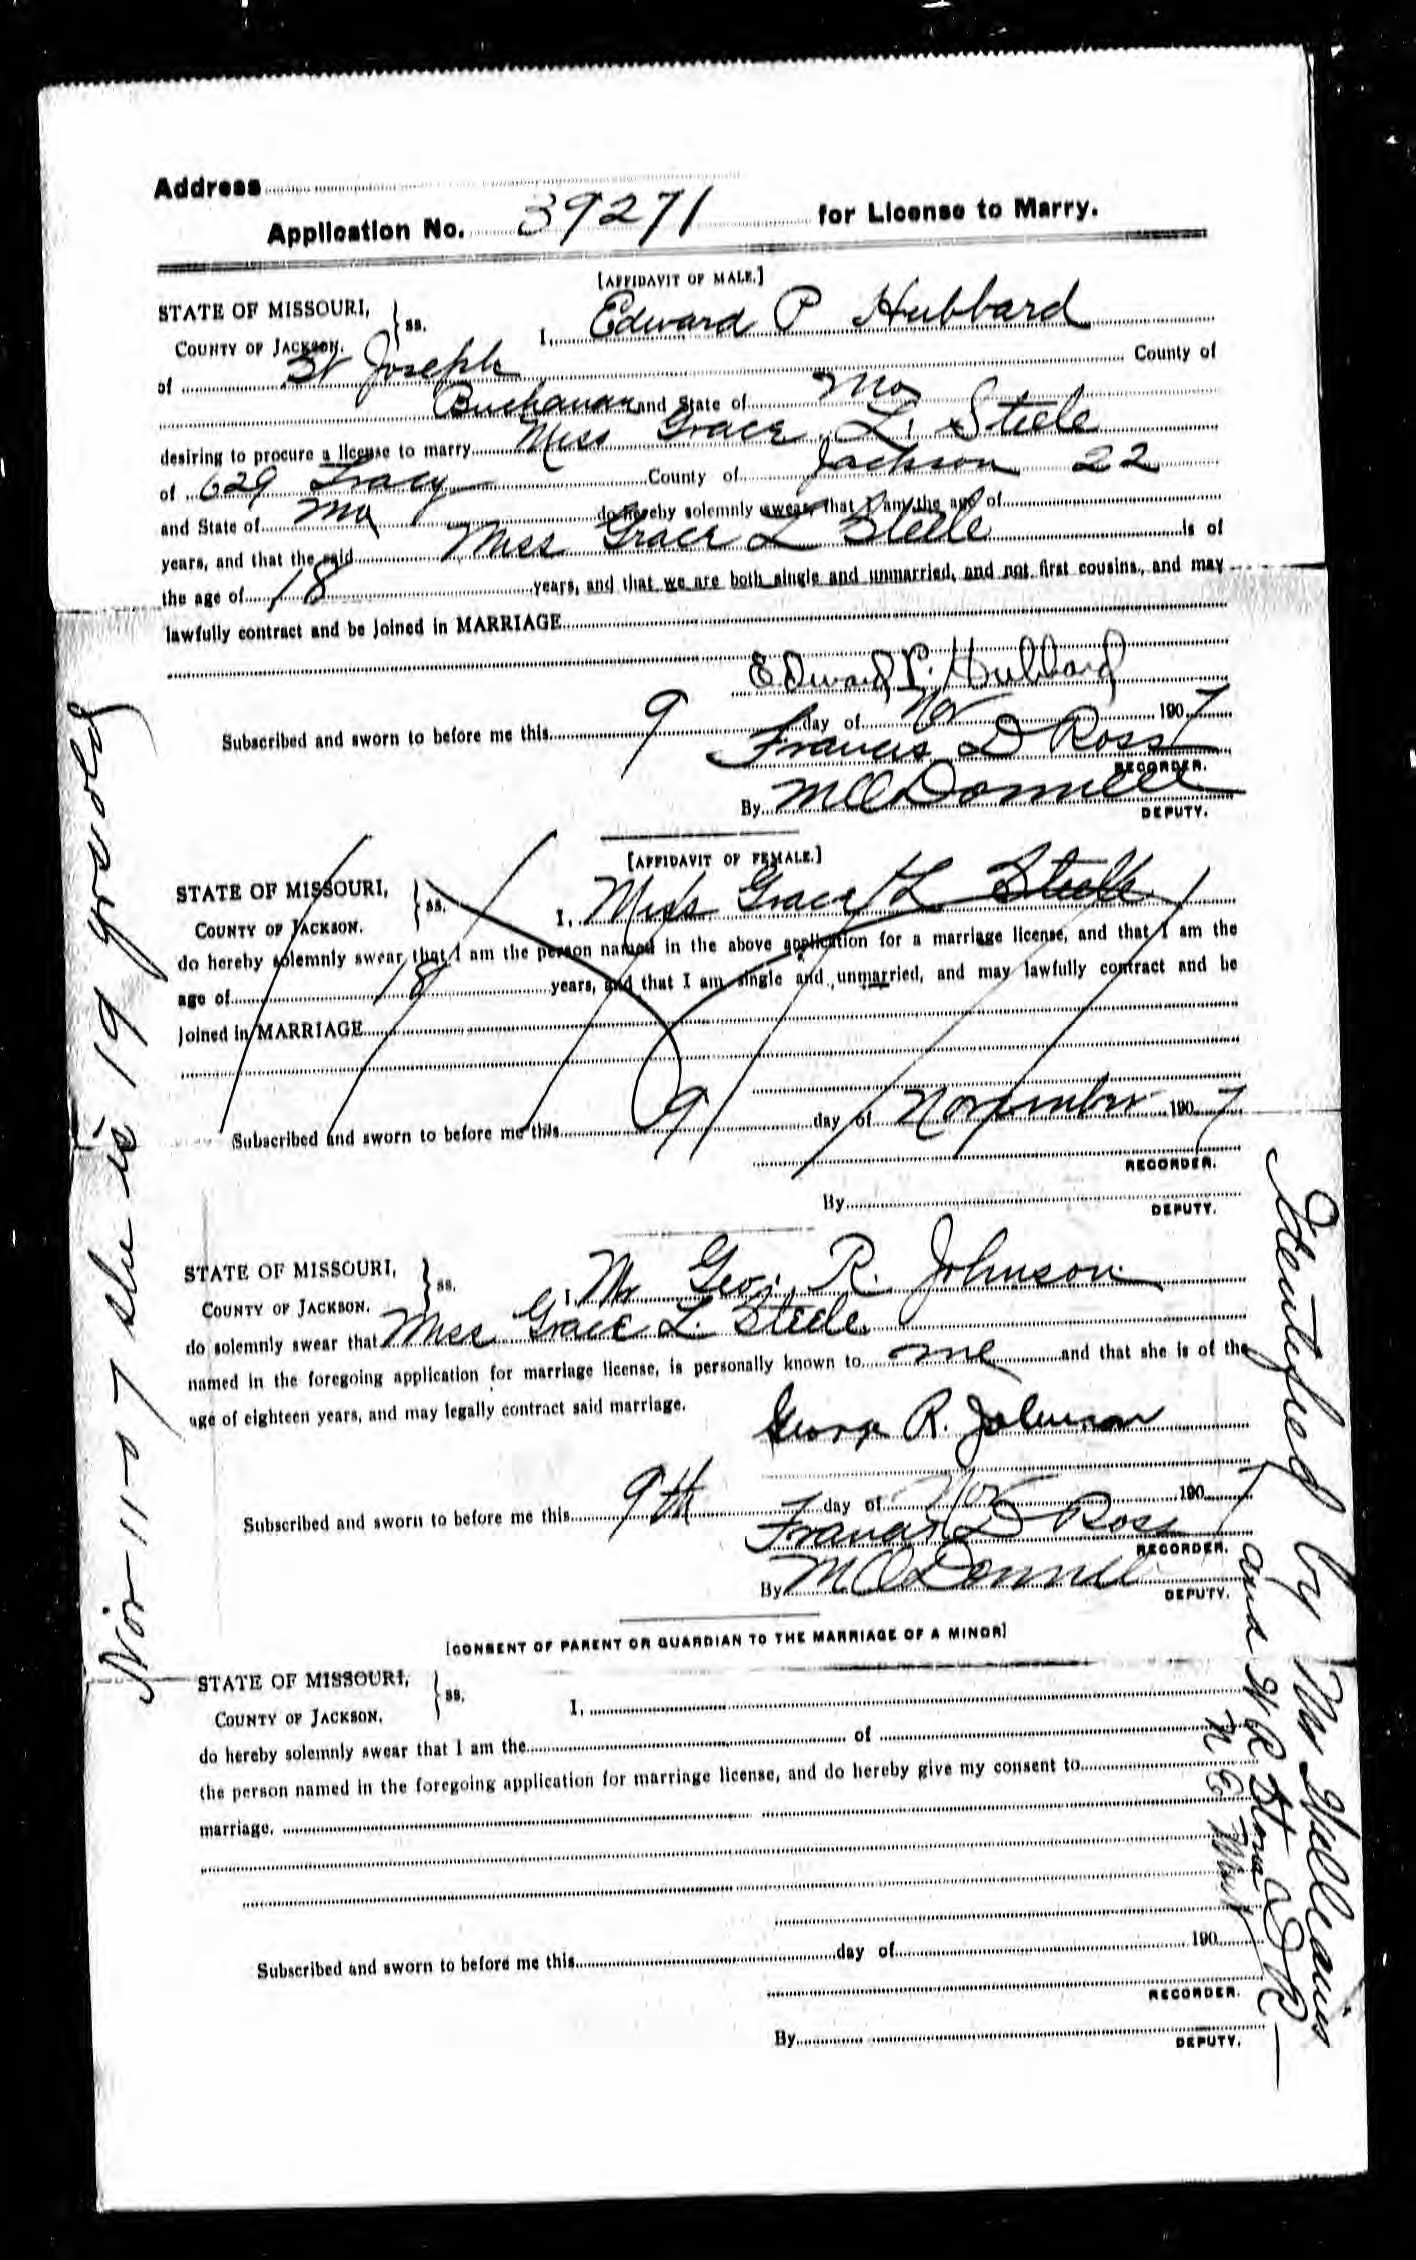 Address
Application No. 39271 for License to Marry.
[AFFIDAVIT OF MALE.]
STATE OF MISSOURI, } ss. I, Edward P Hubbard
COUNTY OF JACKSON.
of St Joseph County of
Buchanan and State of Mo
desiring to procure a license to marry Miss Grace L. Steele
of 629 Tracy County of Jackson 22
and State of Mo do hereby solemnly swear, that I am the age of
years, and that the said Miss Grace L Steele is of
the age of 18 years, and that we are both single and unmarried, and not first cousins, and may
lawfully contract and be joined in MARRIAGE
Edward P. Hubbard
Subscribed and sworn to before me this 9 day of Nov 1907
Francis D Ross
RECORDER.
By M O Donnell
DEPUTY.
[AFFIDAVIT OF FEMALE.]
STATE OF MISSOURI, } ss. I, Miss Grace L Steele
COUNTY OF JACKSON.
do hereby solemnly swear that I am the person named in the above application for a marriage license, and that I am the
age of 18 years, and that I am single and unmarried, and may lawfully contract and be
joined in MARRIAGE
Subscribed and sworn to before me this 9 day of November 1907
RECORDER.
By
DEPUTY.
STATE OF MISSOURI, } ss. I, Mr Geo. R. Johnson
COUNTY OF JACKSON.
do solemnly swear that Miss Grace L. Steele
named in the foregoing application for marriage license, is personally known to me and that she is of the
age of eighteen years, and may legally contract said marriage.
George R. Johnson
Subscribed and sworn to before me this 9th day of Nov 1907
Francis D Ross
RECORDER.
By M O Donnell
DEPUTY.
[CONSENT OF PARENT OR GUARDIAN TO THE MARRIAGE OF A MINOR]
STATE OF MISSOURI, } ss. I,
COUNTY OF JACKSON.
do hereby solemnly swear that I am the of
the person named in the foregoing application for marriage license, and do hereby give my consent to
marriage.
Subscribed and sworn to before me this day of 190
RECORDER.
By
DEPUTY.
Nov-11-07 she is 19 yrs old
Identified by Mr Williams
and W R Stone
N E